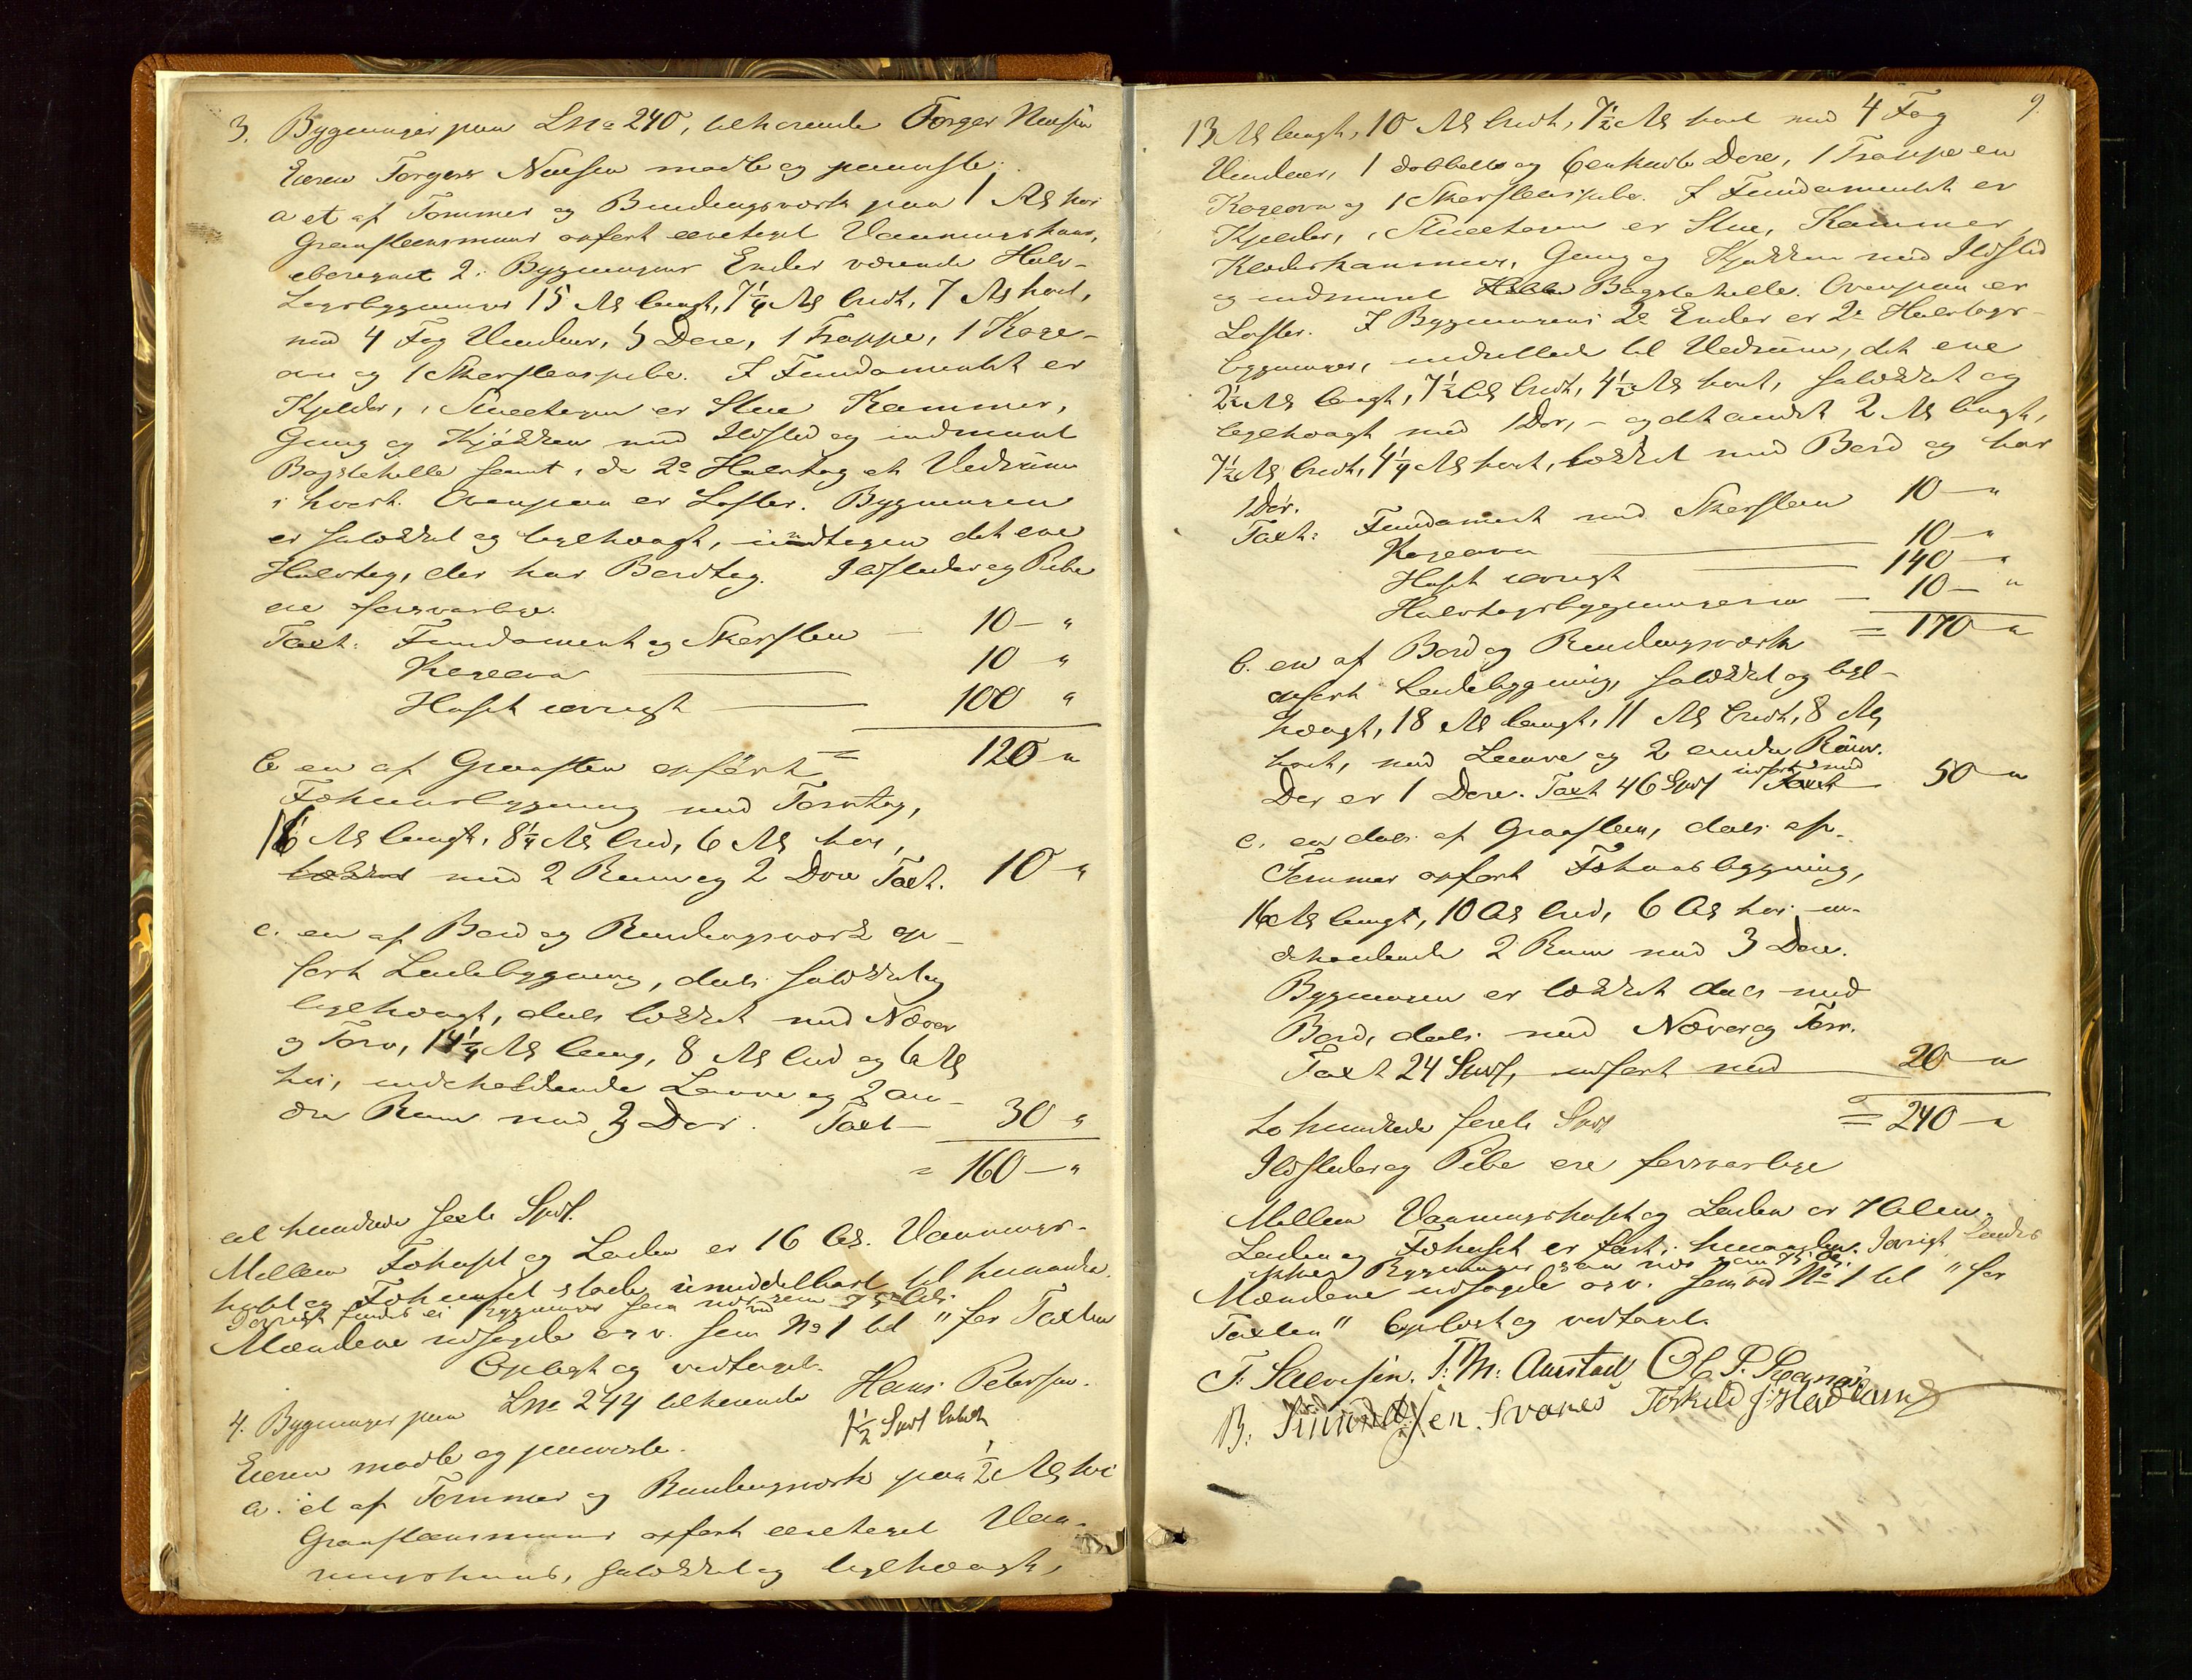 3. Bygninger paa Lno 240, tilhørende Torger Nielsen
Eieren Torger Nielsen mødte og paaviste:
a et af Tømmer og Bindingsværk paa 1 Al. høi
Graasteensmuur opført eenetages Vaaningshuus,
iberegnet 2 i Bygningens Ender værende Halv-
tagsbygninger 15 Al. langt, 7 1/4 Al. bredt, 7 Al. høit,
med 4 Fag Vinduer, 5 Døre, 1 Trappe, 1 Koge-
ovn og 1 Skorsteenspibe. I Fundamentet er
Kjelder, i Stueetagen er Stue Kammer,
Gang og Kjøkken med Ildsted og indmuret
Bagstehelle samt i de 2e Halvtag et Vedrum
i hvert. Ovenpaa er Lofter. Bygningen
er suløkket og teglhængt, undtagen det ene
Halvtag, der har Bordtag. Ildsteder og Pibe
ere forsvarlige.
Taxt: Fundament og Skorsten — 10 — "
Kogeovn — 10 "
Huset iøvrigt — 100 "
= 120 "
b en af Graasten opført
Fæhuusbygning med Torvtag,
16 Al. langt, 8 1/4 Al. bred, 6 Al. høi,
med 2 Rum og 2 Døre Taxt. 10 "
c. en af Bord og Bindingsværk op-
ført Ladebygning, dels suløkket og
teglhængt, dels tækket med Næver
og Torv, 14 1/4 Al. lang, 8 Al. bred og 6 Al.
høi, indeholdende Laave og 2 an-
dre Rum med 3 Dør. Taxt — 30 "
= 160 — "
et hundrede sexti Spd.
Mellem Fæhuset og Laden er 16 Al. Vaanings-
huset og Fæhuset støder umiddelbart til hinanden.
Iøvrigt findes ei Bygninger som nær som 75 Al.
Mændene udsagde o.s.v. som ved No 1 til " før Taxten
Oplæst og vedtaget.
4. Bygninger paa Lno 244 tilhørende Hans Petersen.
1 1/2 Spd betalt
Eieren mødte og paaviste.
a. et af Tømmer og Bindingsværk paa 1/2 Al. høi
Graasteensmuur opført eenetages Vaa-
ningshuus, suløkket og teglhængt,
9.
13 Al. langt, 10 Al. bredt, 7 1/2 Al. høit med 4 Fag
Vinduer, 1 dobbelt og 6 enkelte Døre, 1 Trappe en
Kogeovn og 1 Skorsteenspibe. I Fundamentet er
Kjelder, i Stueetagen er Stue, Kammer,
Klædeskammer, Gang og Kjøkken med Ildsted
og indmuret Bagstehelle. Ovenpaa er
Lofter. I Bygningens 2e Ender er 2e Halvtags-
bygninger, indrettede til Vedrum, det ene
2 1/2 Al. langt, 7 1/2 Al. bredt, 4 1/2 Al. høit, suløkket og
teglhængt med 1 Dør, - og det andet 2 Al. langt,
7 1/2 Al. bredt, 4 1/4 Al. høit, tækket med Bord og har
1 Dør.
Taxt: Fundament med Skorsteen 10 — "
Kogeovn — 10 — "
Huset iøvrigt — 140 — "
Halvtagsbygningerne — 10 — "
= 170 — "
b. en af Bord og Bindingsværk
opført Ladebygning, suløkket og tegl-
hængt, 18 Al. langt, 11 Al. bredt, 8 Al.
høit, med Laave og 2 andre Rum.
Der er 1 Døre. Taxt 46 Spd udført med 50 — "
c. en dels af Graasteen, dels af
Tømmer opført Fæhuusbygning,
16 Al. langt, 10 Al. bred, 6 Al. høi in-
deholdende 2 Rum med 3 Døre.
Bygningen er tækket dels med
Bord, dels med Næver og Torv.
Taxt 24 Spd, udført med — 20 — "
= 240 — "
to hundrede førti Spd
Ildsteder og Pibe ere forsvarlige
Mellem Vaaningshuset og Laden er 7 Alen.
Laden og Fæhuset er fæst i hinanden. Iøvrigt findes
ikke Bygninger saa nær som 75 Al.
Mændene udsagde o.s.v. som ved No 1 til " før
Taxten" Oplæst og vedtaget.
T. Salvesen. T. M. Aarstad Ol. P.
B. Knudsen Svanes Torkild J. Hadland